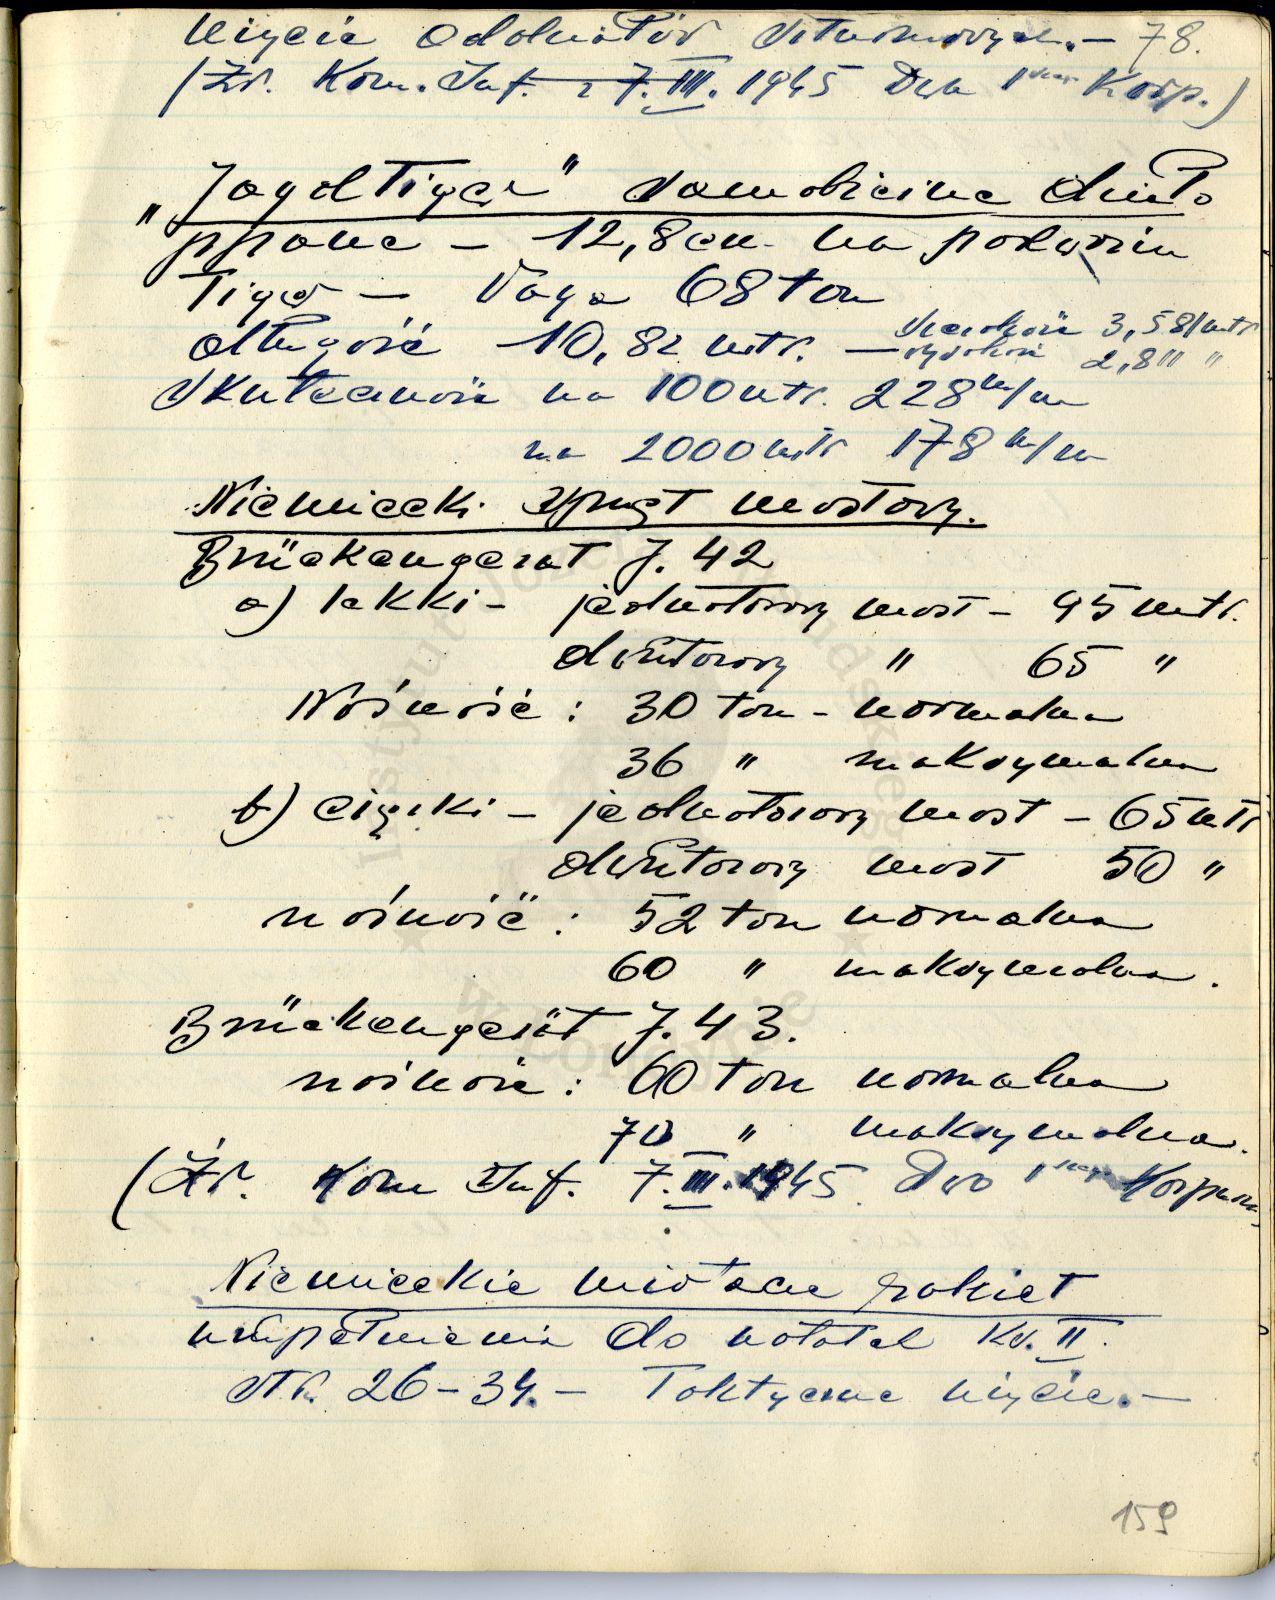 Użycie Oddziałów Szturmowych. – 78.
(Źr. Kom. Inf. z 7.III.1945 Korp.)
„Jagdtiger” samobieżne działo
ppanc – 12,8 cm. na podwoziu
Tiger – Waga 68 ton
długość 10,82 mtr. – szerokość 3,58 mtr
wysokość 2,8 "
Skuteczność na 100 mtr. 228 m/m
na 2000 mtr 178 m/m
Niemiecki sprzęt mostowy.
Brückengerat J. 42
a) lekki – jednotorowy most – 95 mtr.
dwutorowy " 65 "
Nośność : 30 ton – normalna
36 " maksymalna
b) ciężki – jednotorowy most – 65 mtr
dwutorowy most 50 "
nośność : 52 ton normalna
60 " maksymalna.
Brückengerät J. 43.
nośność : 60 ton normalna
70 " maksymalna.
(Źr. Kom Inf. 7.III.1945 Korpusu
Niemieckie miotacze rakiet
uzupełnienia do notatek
str. 26–34. – Taktyczne użycie. –
159
Instytut Józefa Piłsudskiego
w Londynie